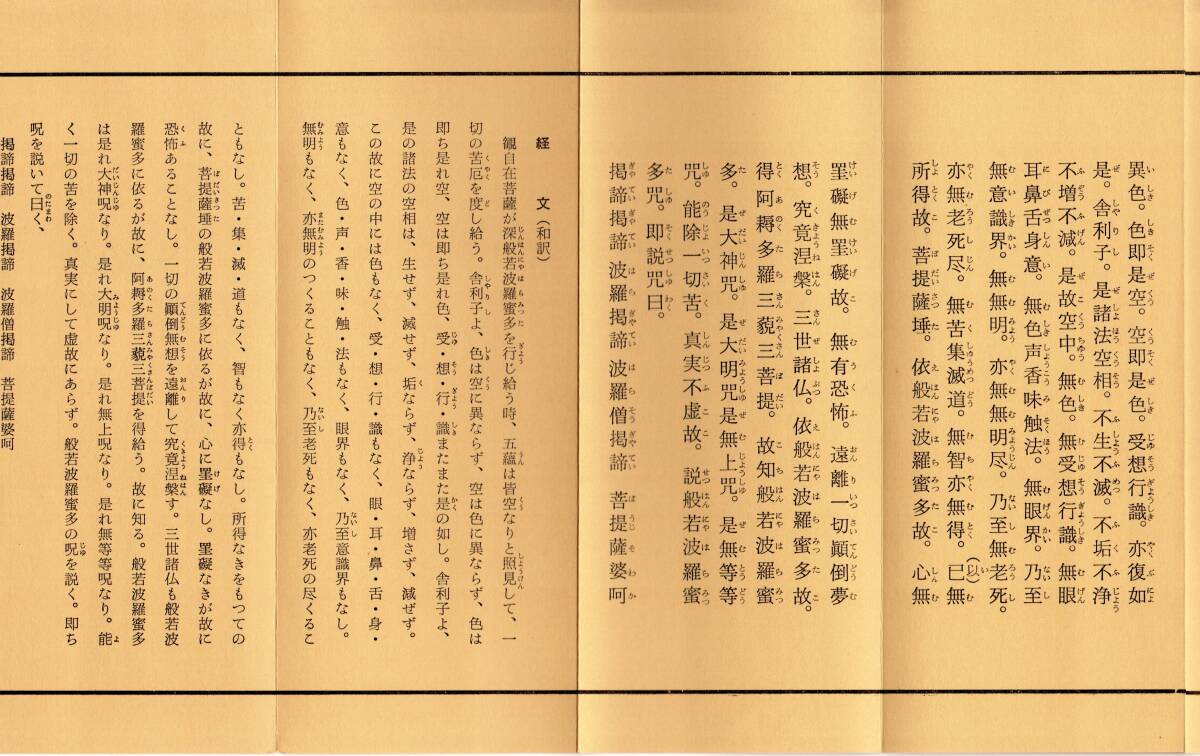 異色。色即是空。空即是色。受想行識。亦復如
是。舎利子。是諸法空相。不生不滅。不垢不浄
不増不減。是故空中。無色。無受想行識。無眼
耳鼻舌身意。無色声香味触法。無眼界。乃至
無意識界。無無明。亦無無明尽。乃至無老死。
亦無老死尽。無苦集滅道。無智亦無得。已(以)無
所得故。菩提薩埵。依般若波羅蜜多故。心無
罣礙無罣礙故。無有恐怖。遠離一切顚倒夢
想。究竟涅槃。三世諸仏。依般若波羅蜜多故。
得阿耨多羅三藐三菩提。故知般若波羅蜜
多。是大神咒。是大明咒是無上咒。是無等等
咒。能除一切苦。真実不虚故。説般若波羅蜜
多咒。即説咒曰。
掲諦掲諦 波羅掲諦 波羅僧掲諦 菩提薩婆呵
経 文(和訳)
観自在菩薩が深般若波羅蜜多を行じ給う時、五蘊は皆空なりと照見して、一
切の苦厄を度し給う。舎利子よ、色は空に異ならず、空は色に異ならず、色は
即ち是れ空、空は即ち是れ色、受・想・行・識もまた是の如し。舎利子よ、
是の諸法の空相は、生せず、滅せず、垢ならず、浄ならず、増さず、減ぜず。
この故に空の中には色もなく、受・想・行・識もなく、眼・耳・鼻・舌・身・
意もなく、色・声・香・味・触・法もなく、眼界もなく、乃至意識界もなし。
無明もなく、亦無明のつくることもなく、乃至老死もなく、亦老死の尽くるこ
ともなし。苦・集・滅・道もなく、智もなく亦得もなし。所得なきをもつての
故に、菩提薩埵の般若波羅蜜多に依るが故に、心に罣礙なし。罣礙なきが故に
恐怖あることなし。一切の顚倒無想を遠離して究竟涅槃す。三世諸仏も般若波
羅蜜多に依るが故に、阿耨多羅三藐三菩提を得給う。故に知る。般若波羅蜜多
は是れ大神呪なり。是れ大明呪なり。是れ無上呪なり。是れ無等等呪なり。能
く一切の苦を除く。真実にして虚故にあらず。般若波羅蜜多の呪を説く。即ち
呪を説いて曰く、
掲諦掲諦 波羅掲諦 波羅僧掲諦 菩提薩婆呵